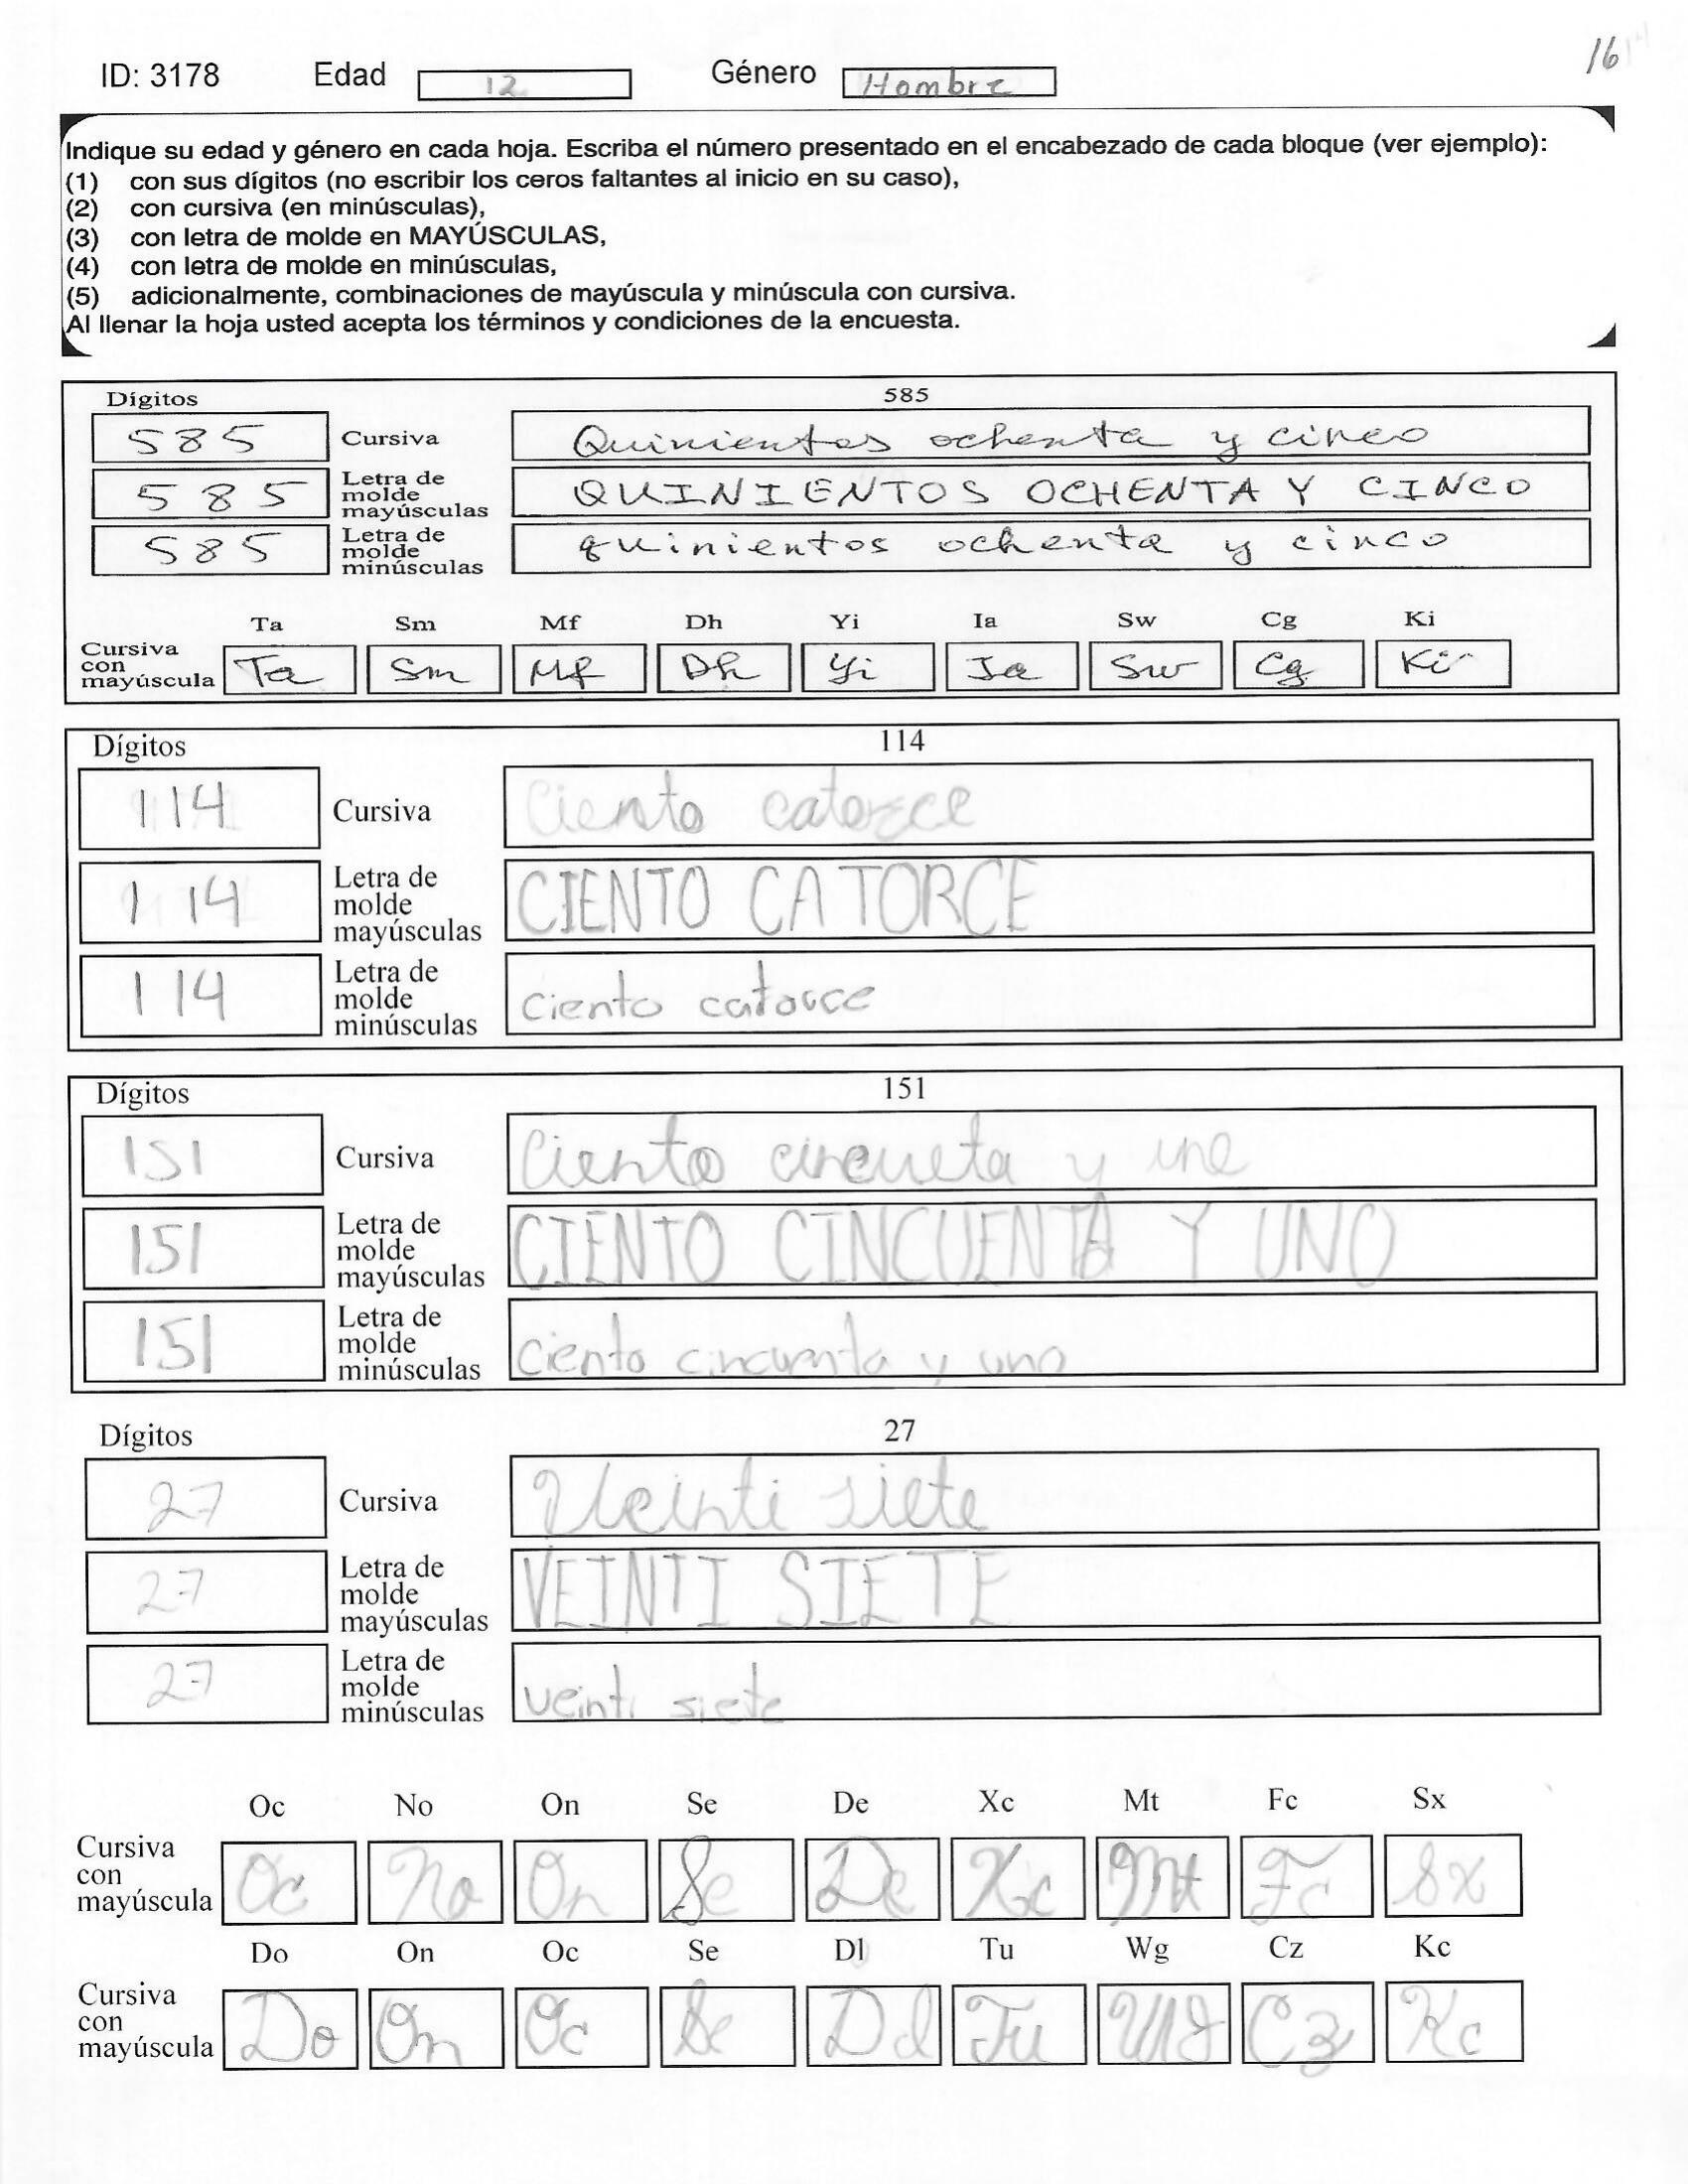 16
ID: 3178 Edad 12 Género Hombre
Indique su edad y género en cada hoja. Escriba el número presentado en el encabezado de cada bloque (ver ejemplo):
(1) con sus dígitos (no escribir los ceros faltantes al inicio en su caso),
(2) con cursiva (en minúsculas),
(3) con letra de molde en MAYÚSCULAS,
(4) con letra de molde en minúsculas,
(5) adicionalmente, combinaciones de mayúscula y minúscula con cursiva.
Al llenar la hoja usted acepta los términos y condiciones de la encuesta.
Dígitos 585
585 Cursiva Quinientos ochenta y cinco
585 Letra de molde mayúsculas QUINIENTOS OCHENTA Y CINCO
585 Letra de molde minúsculas quinientos ochenta y cinco
Ta Sm Mf Dh Yi Ia Sw Cg Ki
Cursiva con mayúscula Ta Sm Mf Dh Yi Ia Sw Cg Ki
Dígitos 114
114 Cursiva Ciento catorce
114 Letra de molde mayúsculas CIENTO CATORCE
114 Letra de molde minúsculas ciento catorce
Dígitos 151
151 Cursiva Ciento cincueta y uno
151 Letra de molde mayúsculas CIENTO CINCUENTA Y UNO
151 Letra de molde minúsculas ciento cincuenta y uno
Dígitos 27
27 Cursiva Veinti siete
27 Letra de molde mayúsculas VEINTI SIETE
27 Letra de molde minúsculas veinti siete
Oc No On Se De Xc Mt Fc Sx
Cursiva con mayúscula Oc No On Se De Xc Mt Fc Sx
Do On Oc Se Dl Tu Wg Cz Kc
Cursiva con mayúscula Do On Oc Se Dl Tu Wg Cz Kc